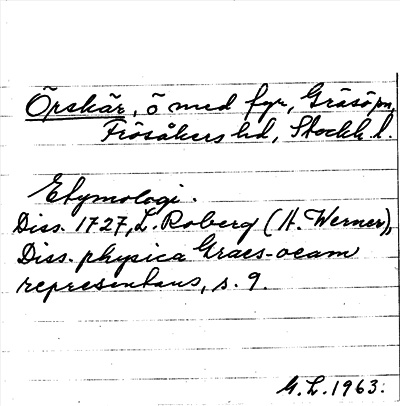 Örskär, ö med fyr, Gräsö pn,
Frösåkers hd, Stockh. l.
Etymologi.
Diss. 1727, L. Roberg (H. Werner),
Diss. physica Graes-oeam
repræsentans, s. 9.
G. L. 1963.